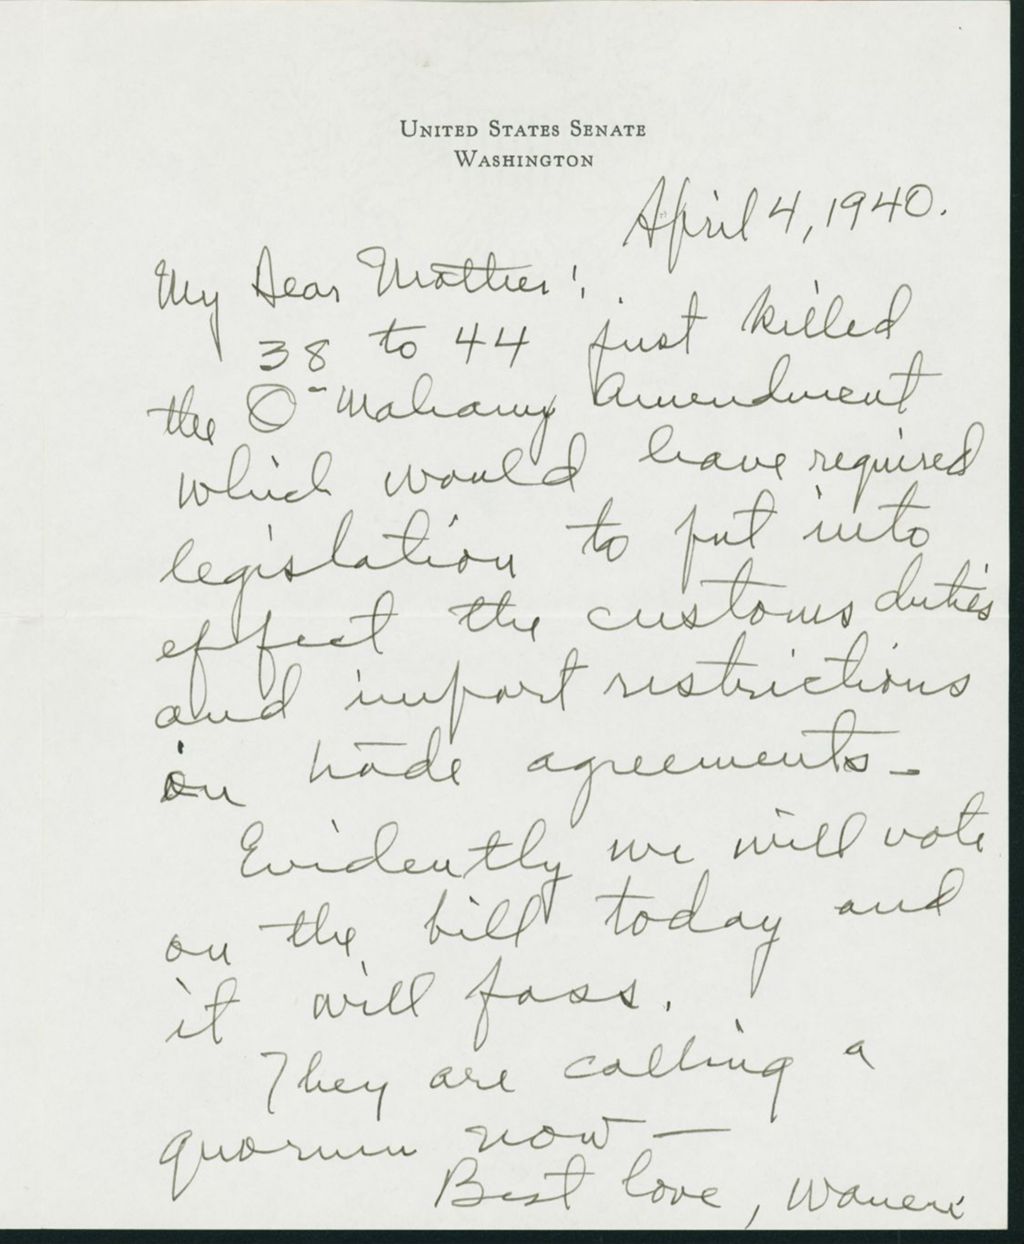 UNITED STATES SENATE
WASHINGTON
April 4, 1940.
My Dear Mother:
38 to 44 just killed
the O-Mahaney Amendment
which would have required
legislation to put into
effect the customs duties
and import restrictions
on trade agreements -
Evidently we will vote
on the bill today and
it will pass.
They are calling a
quorum now —
Best love, Warren